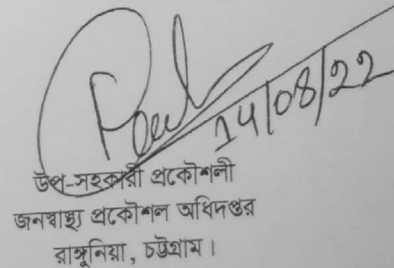 14/08/22
উপ-সহকারী প্রকৌশলী
জনস্বাস্থ্য প্রকৌশল অধিদপ্তর
রাঙ্গুনিয়া, চট্টগ্রাম।